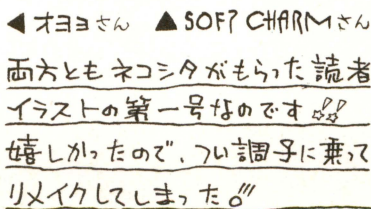 ◀ オヨヨさん ▲ SOFT CHARMさん
両方ともネコシタがもらった読者
イラストの第一号なのです!!
嬉しかったので、つい調子に乗って
リメイクしてしまった!!!